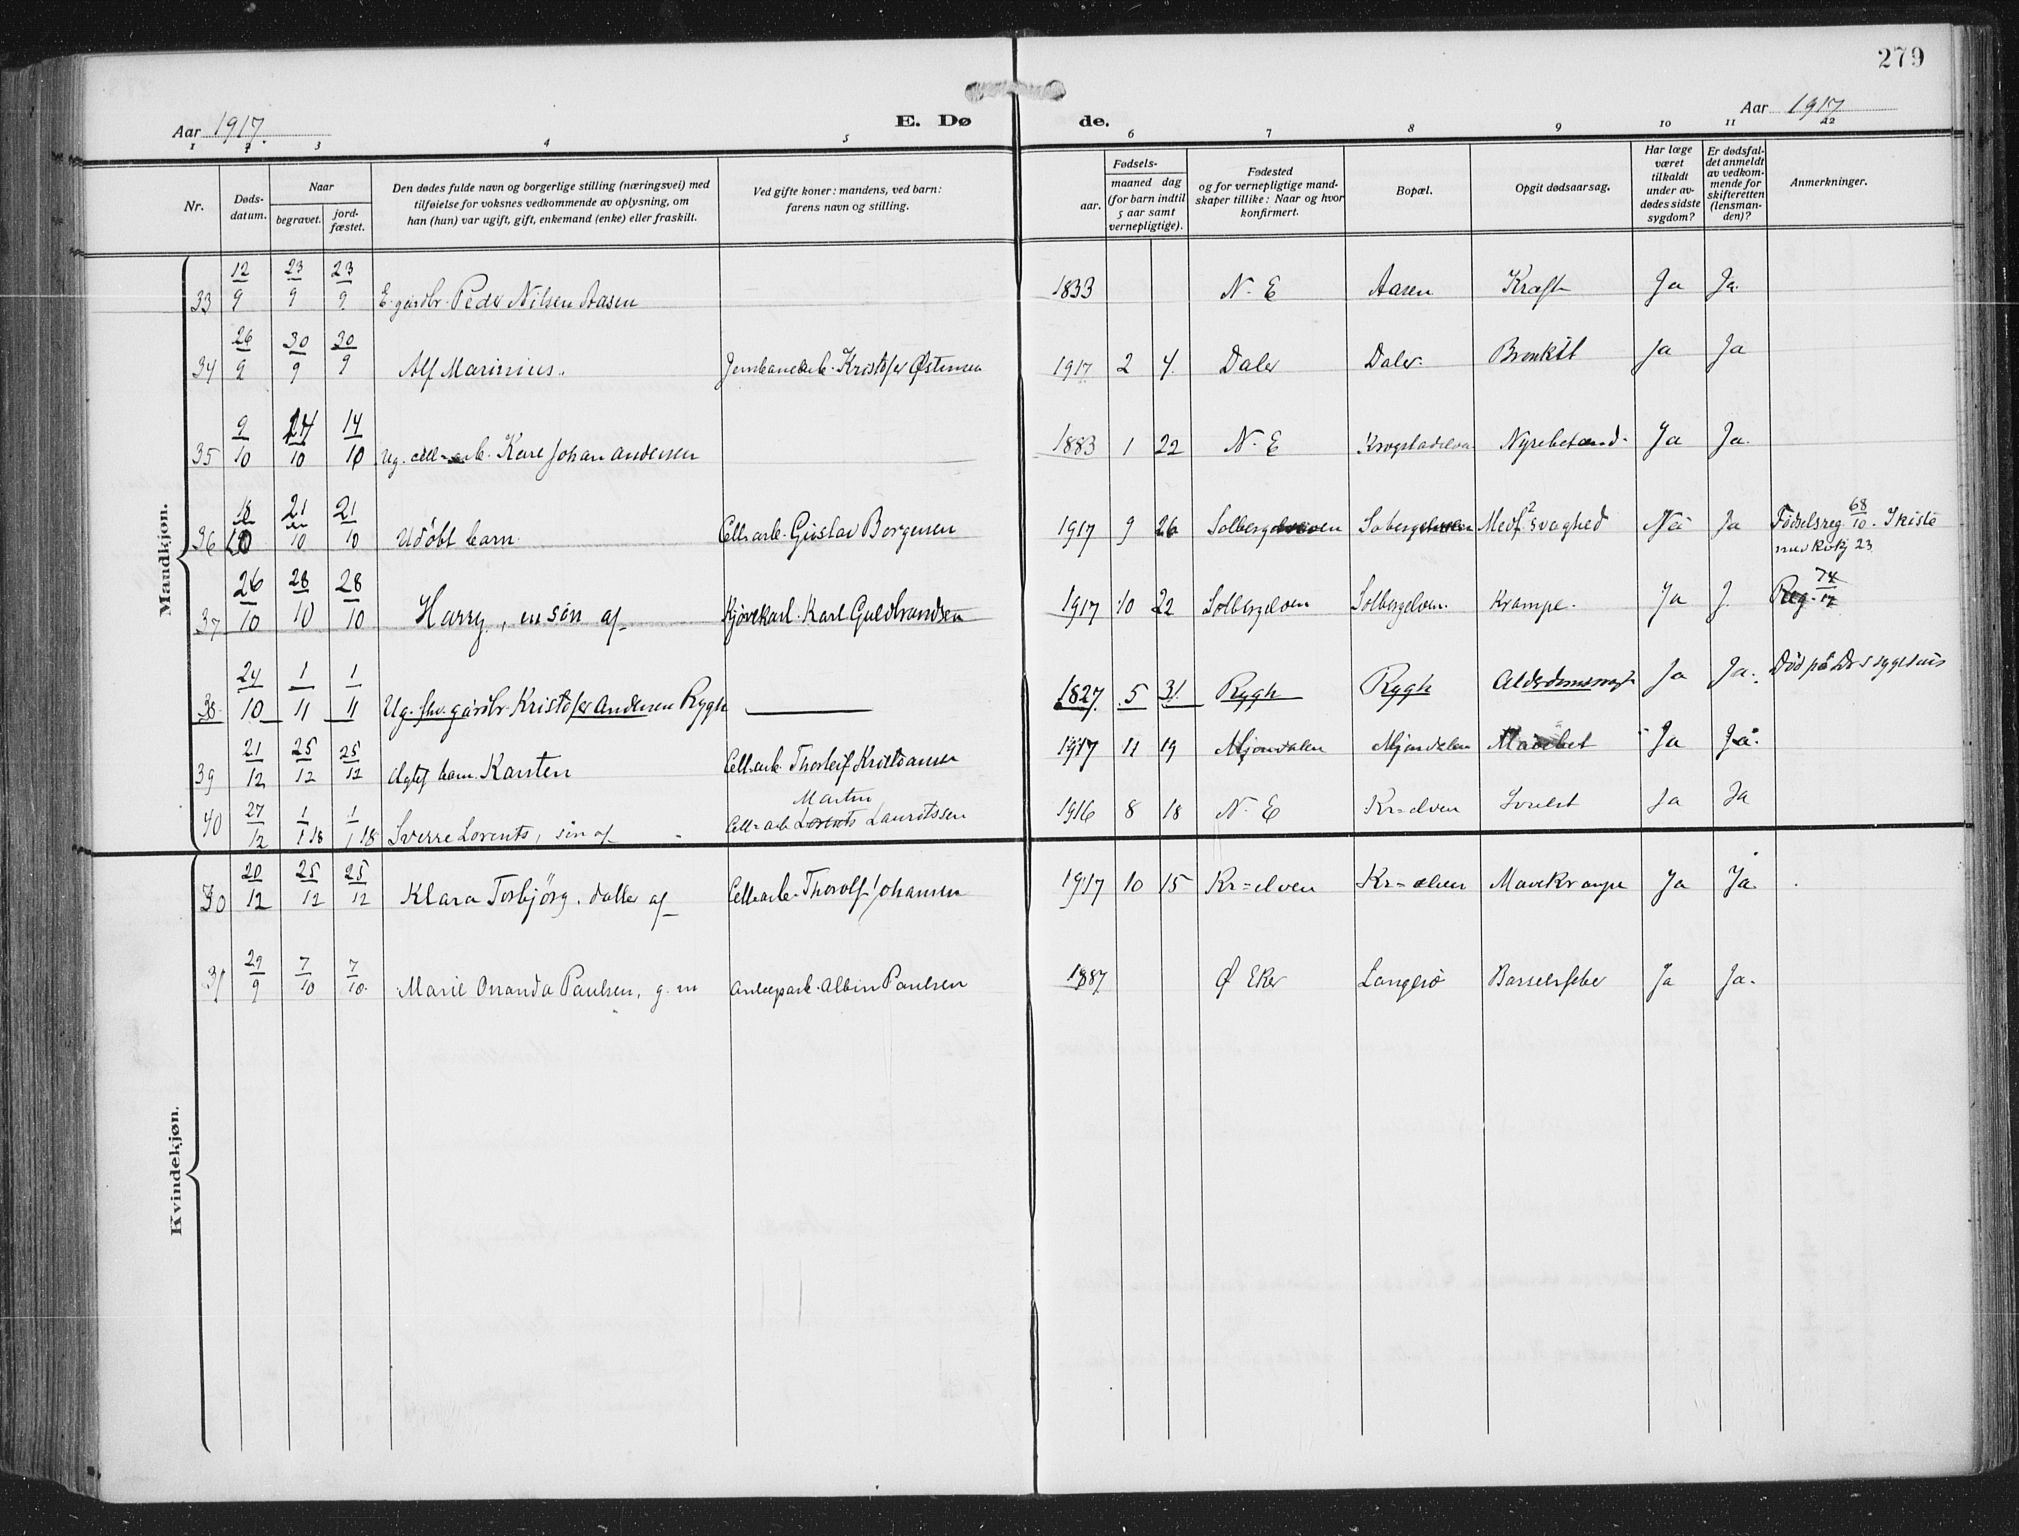 279
Aar 1917.
E. Dø
de.
Aar 1917
1 2 3 4 5 6 7 8 9 10 11 12
Nr.
Døds-
datum.
Naar
begravet.
jord-
fæstet.
Den dødes fulde navn og borgerlige stilling (næringsvei) med
tilføielse for voksnes vedkommende av oplysning, om
han (hun) var ugift, gift, enkemand (enke) eller fraskilt.
Ved gifte koner: mandens, ved barn:
farens navn og stilling.
Fødsels-
aar.
maaned dag
(for barn indtil
5 aar samt
vernepligtige).
Fødested
og for vernepligtige mand-
skaper tillike: Naar og hvor
konfirmert.
Bopæl.
Opgit dødsaarsag.
Har læge
været
tilkaldt
under av-
dødes sidste
sygdom?
Er dødsfal-
det anmeldt
av vedkom-
mende for
skifteretten
(lensman-
den)?
Anmerkninger.
Mandkjøn.
33 12/9 23/9 23/9 E. gårdbr. Peder Nilsen Aasen 1833 N. E Aasen Kræft Ja Ja.
34 26/9 30/9 30/9 Alf Marinius. Kristofer Østensen 1917 2 4. Daler Daler. Bronkit Ja Ja
35 9/10 14/10 14/10 Ug. cell-arb. Karl Johan Andersen 1883 1 22 N. E Krogstadelven Nyrebetænd. Ja Ja.
36 18/10 21/10 21/10 Udöbt barn. Cellarb. Gustav Borgersen 1917 9 26 Solbergelven Solbergelven Medf. svaghed Nei Ja Födselsreg 68/10. I kiste
med 23
37 26/10 28/10 28/10 Harry, en sön af Kjörekarl. Karl Guldbrandsen 1917 10 22 Solbergelven Solbergelven. Krampe. Ja J. Reg. 74/17
38 24/10 1/11 1/11 Ug. fhv. gårdbr. Kristofer Andersen Rygh 1827 5 31. Rygh Rygh Alderdomssvagh Ja Ja. Död på Dr s sygehus
39 21/12 25/12 25/12 barn Karsten Cellarb. Thorleif Kristiansen 1917 11 19 Mjøndalen Mjøndalen Ja Ja.
Martin
40 27/12 1/1 18 1/1 18 Sverre Lorents, sön af Cell-arb Lorents Lauritssen 1916 8 18 N. E Kr=elven Ja Ja
Kvindekjøn.
30 20/12 25/12 25/12 Klara Torbjörg. datter af Cellarb. Thorolf Johansen 1917 10 15 Kr=elven Kr=elven Mavekrampe Ja Ja.
31 29/9 7/10 7/10. Marie Amanda Paulsen, g. m Albin Paulsen 1887 Ø Eker Langesö Barselfeber Ja Ja.